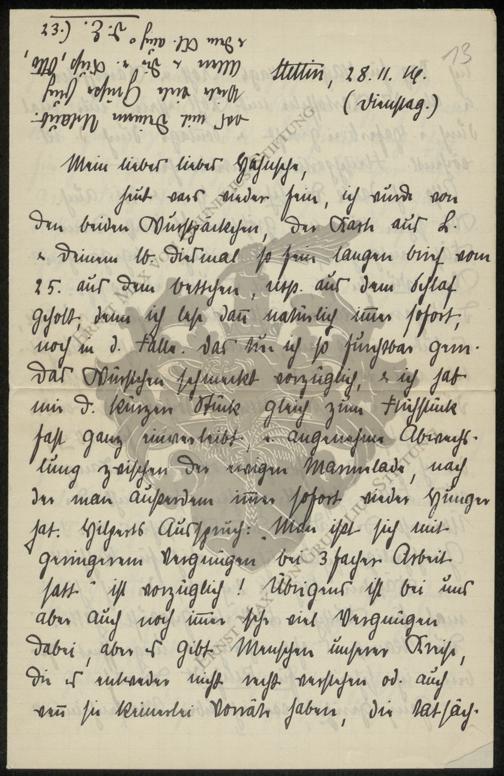 13
Stettin, 28.11.16.
(Dienstag.)
Mein lieber lieber
heut wars wieder fein, ich wurde von
den beiden Wurstpäckchen, der Karte aus L.
& Deinem lb. diesmal so fein langen Brief vom
25. aus dem Bettchen, resp. aus dem Schlaf
geholt, denn ich lese dann natürlich immer sofort,
noch in d. Falle. Das tue ich so furchtbar gern.
Das Würstchen schmeckt vorzüglich, & ich hab
mir d. kurzen Stück gleich zum Frühstück
fast ganz einverleibt, e. angenehme Abwechs-
lung zwischen der ewigen Marmelade, nach
der man außerdem immer sofort wieder Hunger
hat. Hilperts Ausspruch: "Man ißt sich mit
geringerem Vergnügen bei 3facher Arbeit
satt" ist vorzüglich! Übrigens ist bei uns
aber auch noch immer sehr viel Vergnügen
dabei, aber es gibt Menschen unserer Kreise,
die es entweder nicht recht verstehen od. auch
wenn sie keinerlei Vorräte haben, die tatsäch-
das mit Deinem Urlaub.
viele Grüße
ERNST MAX VON GRUNELIUS-STIFTUNG
ERNST MAX VON GRUNELIUS-STIFTUNG